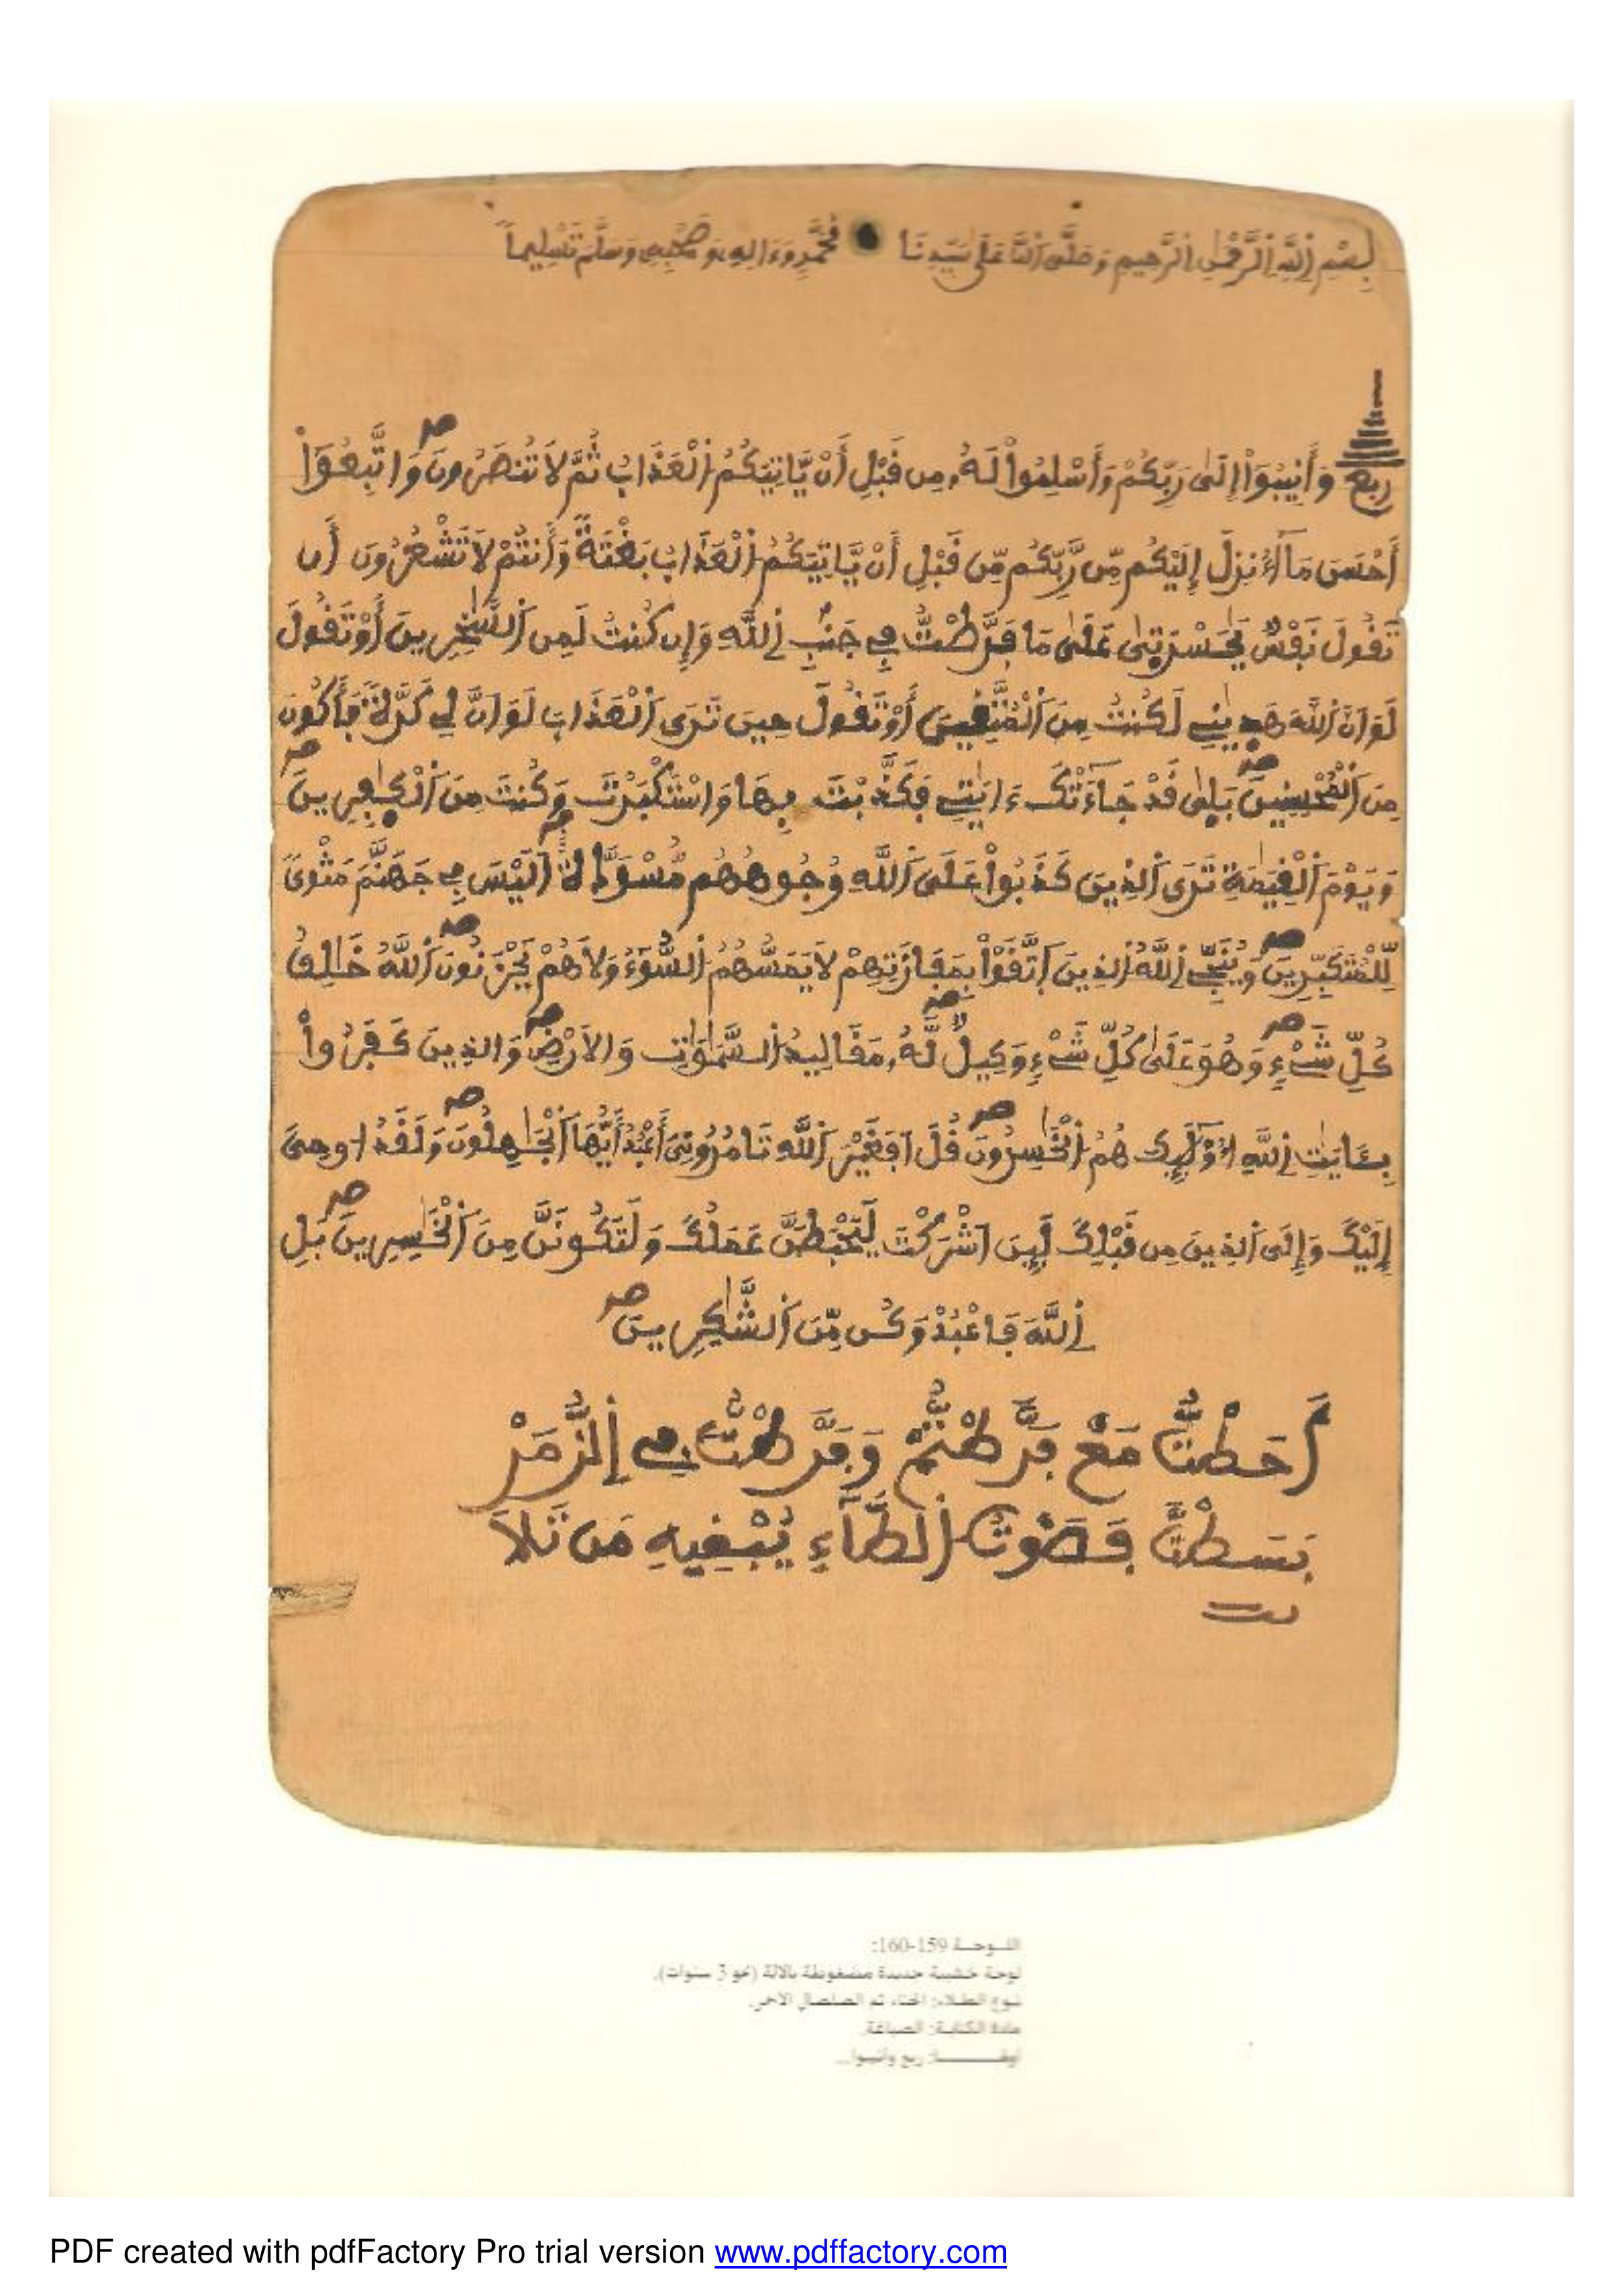 بِسْمِ اِ۬للَّهِ اِ۬لرَّحْمَٰنِ اِ۬لرَّحِيمِ وَصَلَّى اَ۬للَّهُ عَلَىٰ سَيِّدِنَا مُحَمَّدٍ وَءَالِهِ وَصَحْبِهِ وَسَلَّمَ تَسْلِيماً
ربع وَأَنِيبُوٓاْ إِلَىٰ رَبِّكُمْ وَأَسْلِمُواْ لَهُۥ مِن قَبْلِ أَنْ يَّاتِيَكُمُ اُ۬لْعَذَابُ ثُمَّ لَا تُنصَرُونَ صه وَاتَّبِعُوٓاْ
أَحْسَنَ مَآ أُنزِلَ إِلَيْكُم مِّن رَّبِّكُم مِّن قَبْلِ أَنْ يَّاتِيَكُمُ اُ۬لْعَذَابُ بَغْتَةً وَأَنتُمْ لَا تَشْعُرُونَ أَن
تَقُولَ نَفْسٌ يَٰحَسْرَتَىٰ عَلَىٰ مَا فَرَّطْتُّ فِے جَنۢبِ اِ۬للَّهِ وَإِن كُنتُ لَمِنَ اَ۬لسَّٰخِرِينَ أَوْ تَقُولَ
لَوَ اَنَّ اَ۬للَّهَ هَدٜيٰنِے لَكُنتُ مِنَ اَ۬لْمُتَّقِينَ أَوْ تَقُولَ حِينَ تَرَى اَ۬لْعَذَابَ لَوَ اَنَّ لِے كَرَّةً فَأَكُونَ
مِنَ اَ۬لْمُحْسِنِينَ صه بَلٜىٰ قَدْ جَآءَتْكَ ءَايَٰتِے فَكَذَّبْتَ بِهَا وَاسْتَكْبَرْتَ وَكُنتَ مِنَ اَ۬لْكٰٜفِرِينَ صه
وَيَوْمَ اَ۬لْقِيَٰمَةِ تَرَى اَ۬لذِينَ كَذَبُواْ عَلَى اَ۬للَّهِ وُجُوهُهُم مُّسْوَدَّةٌ صه اَلَيْسَ فِے جَهَنَّمَ مَثْوىً
لِّلْمُتَكَبِّرِينَ صه وَيُنَجِّے اِ۬للَّهُ اُ۬لذِينَ اَ۪تَّقَوْاْ بِمَفَازَتِهِمْ لَا يَمَسُّهُمُ اُ۬لسُّوٓءُ وَلَا هُمْ يَحْزَنُونَ صه اَ۬للَّهُ خَٰلِقُ
كُلِّ شَےْءٍ صه وَهُوَ عَلَىٰ كُلِّ شَےْءٍ وَكِيلٌ صه لَّهُۥ مَقَالِيدُ اُ۬لسَّمَٰوَٰتِ وَالَارْضِ صه وَالذِينَ كَفَرُواْ
بِـَٔايَٰتِ اِ۬للَّهِ أُوْلَٰٓئِكَ هُمُ اُ۬لْخَٰسِرُونَ صه قُلَ اَفَغَيْرَ اَ۬للَّهِ تَامُرُونِيَ أَعْبُدُ أَيُّهَا اَ۬لْجَٰهِلُونَ صه وَلَقَدُ ا۟وحِيَ
إِلَيْكَ وَإِلَى اَ۬لذِينَ مِن قَبْلِكَ لَئِنَ اَشْرَكْتَ لَيَحْبَطَنَّ عَمَلُكَ وَلَتَكُونَنَّ مِنَ اَ۬لْخَٰسِرِينَ صه بَلِ
اِ۬للَّهَ فَاعْبُدْ وَكُن مِّنَ اَ۬لشَّٰكِرِينَ صه
أَحَطْتُّ مَعْ فَرَّطْتُّمْ وَفَرَّطْتُّ فِے اِ۬لزُّمَرْ
بَسَطْتَّ فَصَوْتُ اُ۬لطَّآءِ يُبْقِيهِ مَن تَلَا
اللوحة 159-160:
لوحة خشبية جديدة مضغوطة بالآلة (نحو 3 سنوات).
نوع الطلاء: الحناء ثم الصلصال الأحمر.
مادة الكتابة: الصباغة.
ربع وأنيبوا...
PDF created with pdfFactory Pro trial version www.pdffactory.com